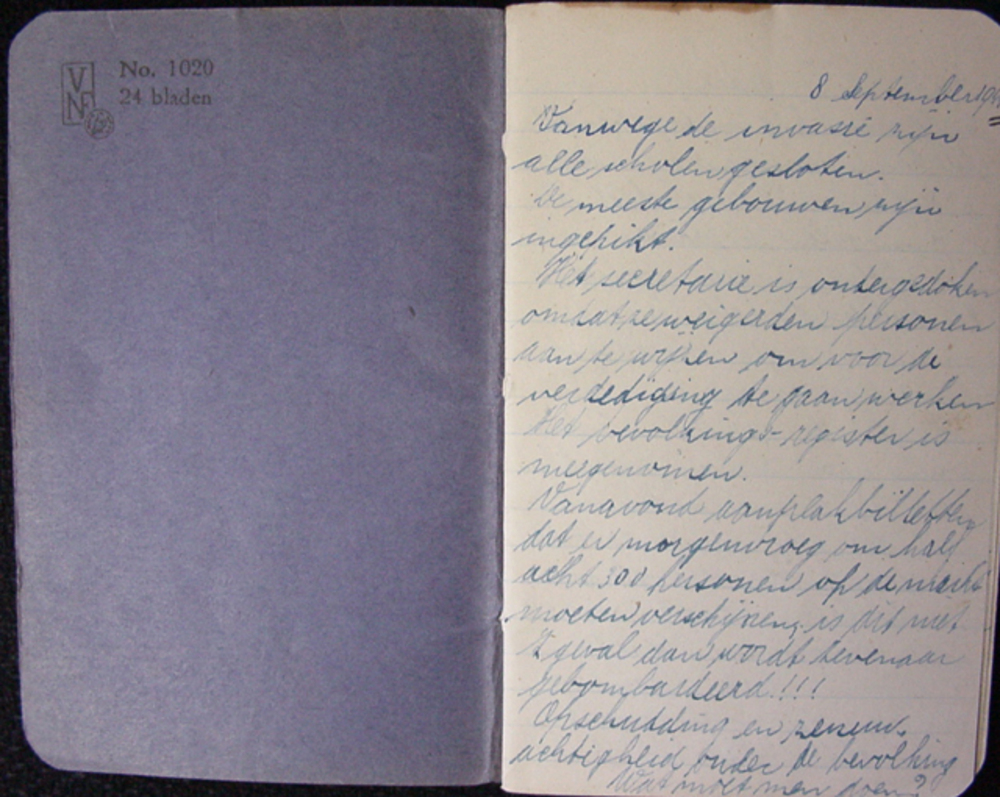 VNF
No. 1020
24 bladen
8 September 19
Vanwege de invasie zijn
alle scholen gesloten.
De meeste gebouwen zijn
ingepikt.
Het secretarie is ondergedoken
omdat ze weigerden personen
aan te wijzen om voor de
verdediging te gaan werken
Het bevolkings-register is
meegenomen.
Vanavond aanplakbilletten
dat er morgenvroeg om half
acht 300 personen op de markt
moeten verschijnen, is dit niet
't geval dan wordt Zevenaar
gebombardeerd!!!
Opschudding en zenuw-
achtigheid onder de bevolking
Wat moet men doen?